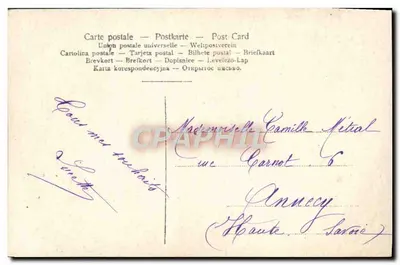 Carte postale — Postkarte — Post Card
Union postale universelle — Weltpostverein
Cartolina postale — Tarjeta postal — Bilhete postal — Briefkaart
Brevkort — Brefkort — Dopisnice — Levelező-Lap
Karta korespondencyjna — Открытое письмо.
Tous mes souhaits
Mademoiselle Camille Métral
rue Carnot 6
Annecy
(Haute Savoie)
CPARAMA